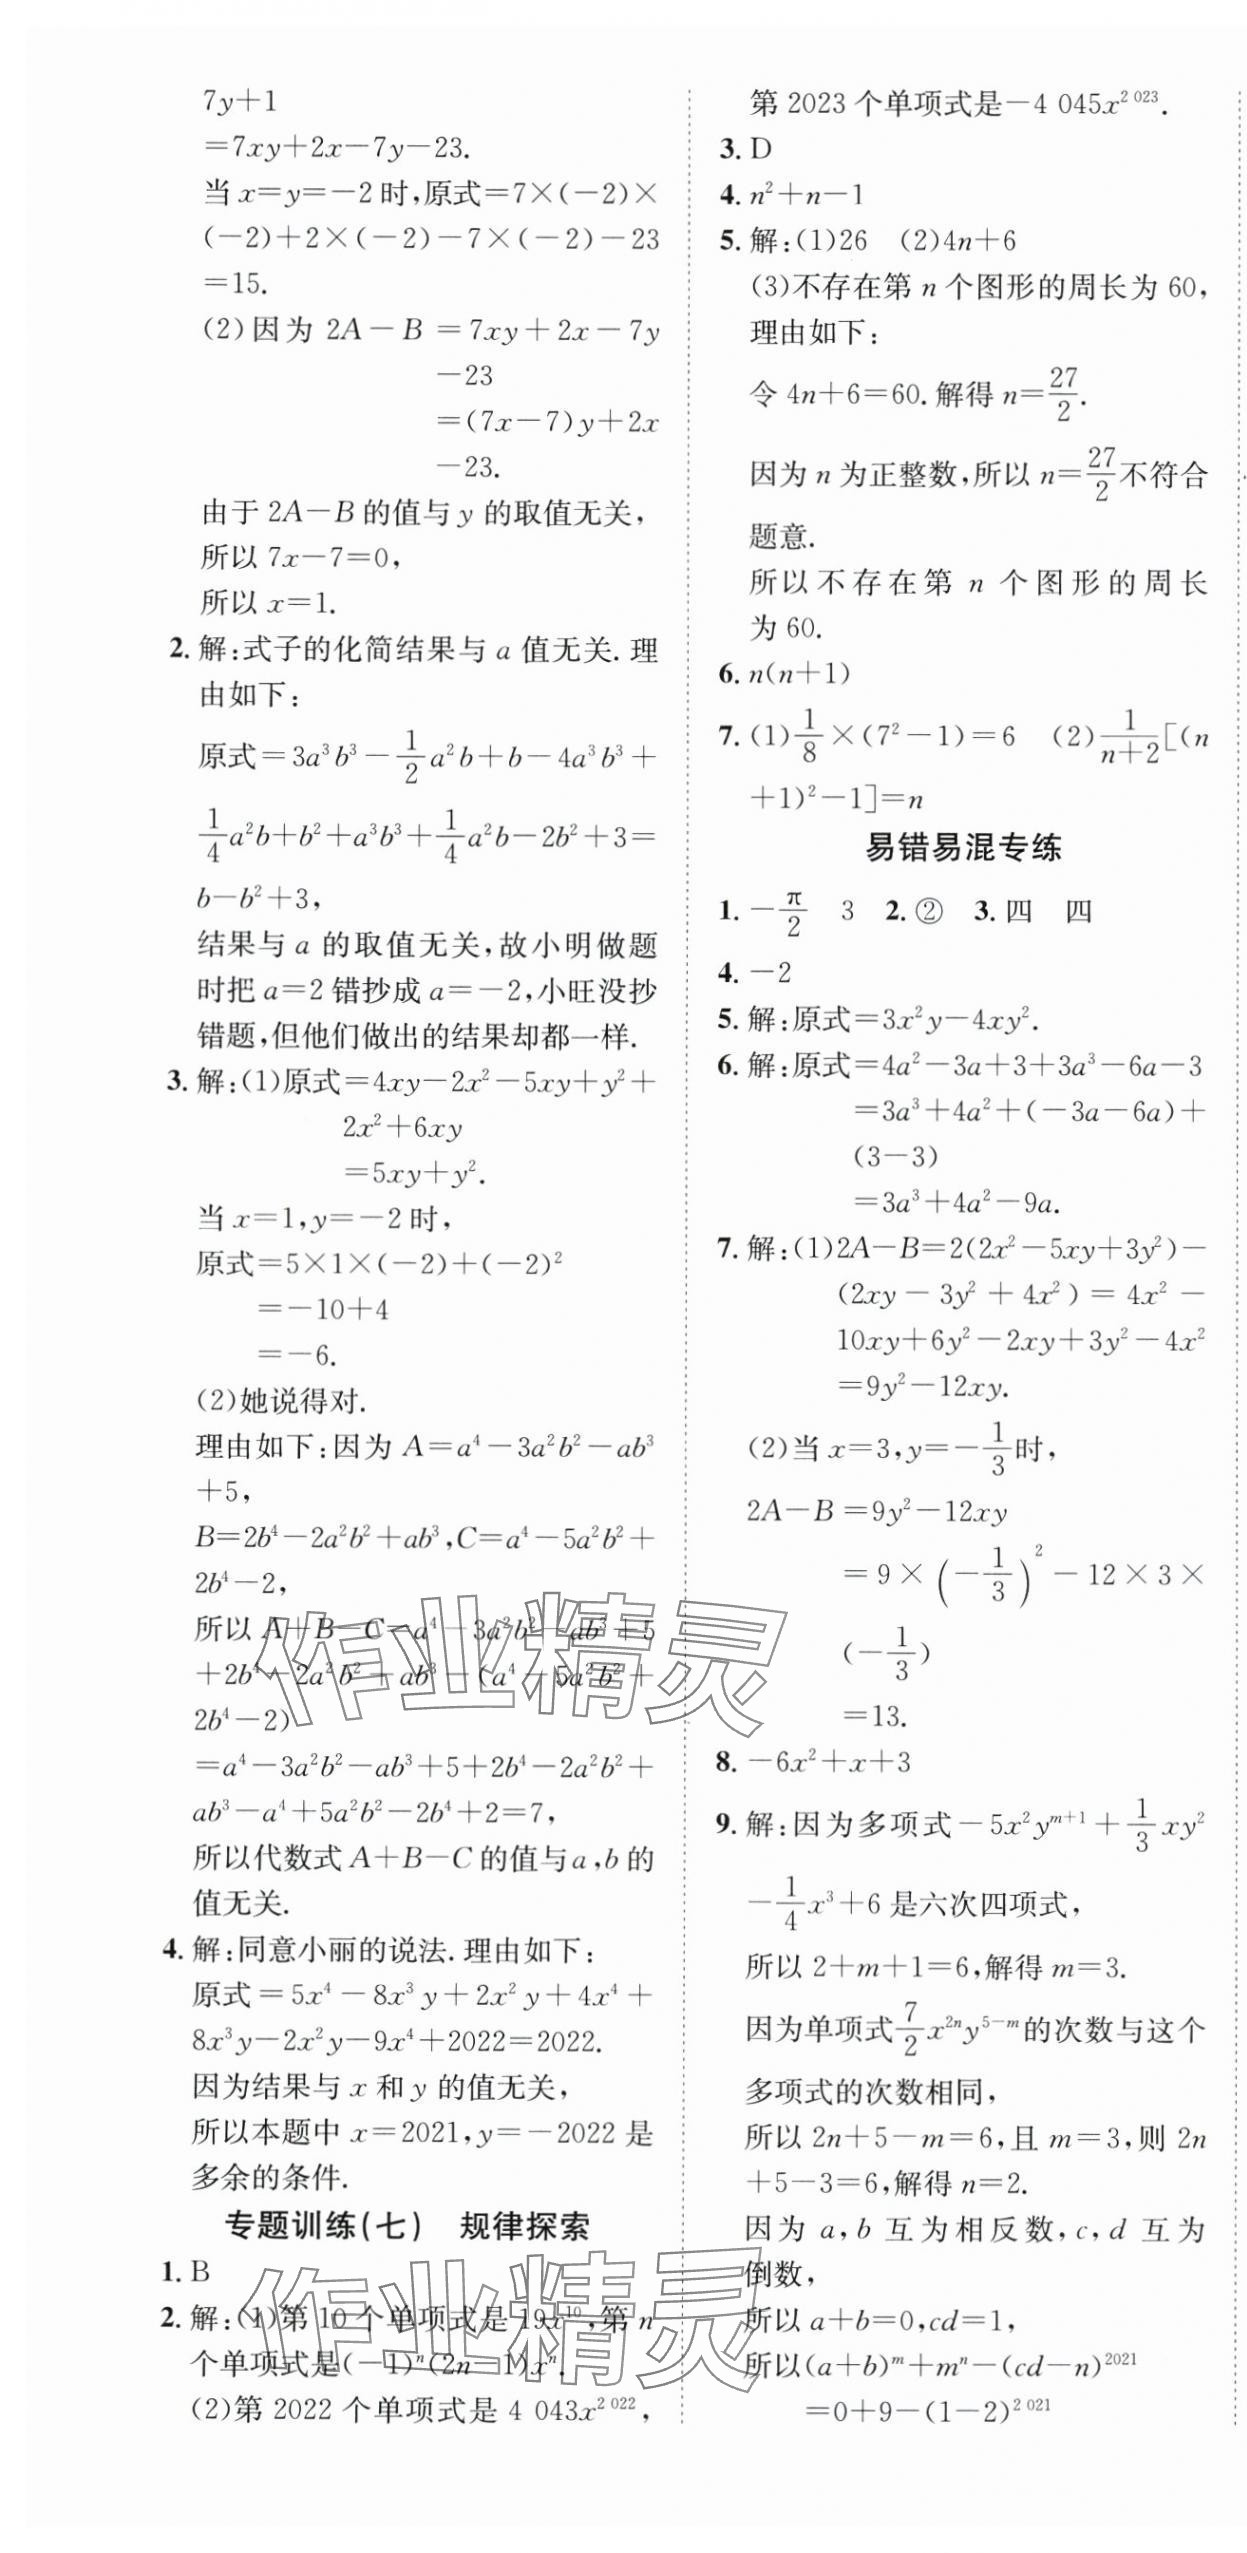 7y+1
=7xy+2x-7y-23.
当 x=y=-2 时,原式=7×(-2)×
(-2)+2×(-2)-7×(-2)-23
=15.
(2)因为 2A-B =7xy+2x-7y
-23
=(7x-7)y+2x
-23.
由于 2A-B 的值与 y 的取值无关,
所以 7x-7=0,
所以 x=1.
2. 解:式子的化简结果与 a 值无关. 理
由如下:
原式=3a³b³-1/2a²b+b-4a³b³+
1/4a²b+b²+a³b³+1/4a²b-2b²+3=
b-b²+3,
结果与 a 的取值无关,故小明做题
时把 a=2 错抄成 a=-2,小旺没抄
错题,但他们做出的结果却都一样.
3. 解:(1)原式=4xy-2x²-5xy+y²+
2x²+6xy
=5xy+y².
当 x=1,y=-2 时,
原式=5×1×(-2)+(-2)²
=-10+4
=-6.
(2)她说得对.
理由如下:因为 A=a⁴-3a²b²-ab³
+5,
B=2b⁴-2a²b²+ab³,C=a⁴-5a²b²+
2b⁴-2,
所以 A+B-C=a⁴-3a²b²-ab³+5
+2b⁴-2a²b²+ab³-(a⁴-5a²b²+
2b⁴-2)
=a⁴-3a²b²-ab³+5+2b⁴-2a²b²+
ab³-a⁴+5a²b²-2b⁴+2=7,
所以代数式 A+B-C 的值与 a,b 的
值无关.
4. 解:同意小丽的说法. 理由如下:
原式=5x⁴-8x³y+2x²y+4x⁴+
8x³y-2x²y-9x⁴+2022=2022.
因为结果与 x 和 y 的值无关,
所以本题中 x=2021,y=-2022 是
多余的条件.
专题训练(七) 规律探索
1. B
2. 解:(1)第 10 个单项式是 19x¹⁰,第 n
个单项式是(-1)ⁿ(2n-1)xⁿ.
(2)第 2022 个单项式是 4 043x^{2 022},
第 2023 个单项式是-4 045x^{2 023}.
3. D
4. n²+n-1
5. 解:(1)26 (2)4n+6
(3)不存在第 n 个图形的周长为 60,
理由如下:
令 4n+6=60. 解得 n=27/2.
因为 n 为正整数,所以 n=27/2不符合
题意.
所以不存在第 n 个图形的周长
为 60.
6. n(n+1)
7. (1)1/8×(7²-1)=6 (2)1/(n+2)[(n
+1)²-1]=n
易错易混专练
1. -π/2 3 2. ② 3. 四 四
4. -2
5. 解:原式=3x²y-4xy².
6. 解:原式=4a²-3a+3+3a³-6a-3
=3a³+4a²+(-3a-6a)+
(3-3)
=3a³+4a²-9a.
7. 解:(1)2A-B=2(2x²-5xy+3y²)-
(2xy-3y²+4x²)=4x²-
10xy+6y²-2xy+3y²-4x²
=9y²-12xy.
(2)当 x=3,y=-1/3时,
2A-B=9y²-12xy
=9×(-1/3)²-12×3×
(-1/3)
=13.
8. -6x²+x+3
9. 解:因为多项式-5x²y^{m+1}+1/3xy²
-1/4x³+6 是六次四项式,
所以 2+m+1=6,解得 m=3.
因为单项式7/2x^{2n}y^{5-m}的次数与这个
多项式的次数相同,
所以 2n+5-m=6,且 m=3,则 2n
+5-3=6,解得 n=2.
因为 a,b 互为相反数,c,d 互为
倒数,
所以 a+b=0,cd=1,
所以(a+b)^m+m^n-(cd-n)^{2021}
=0+9-(1-2)^{2 021}
作业精灵
作业精灵